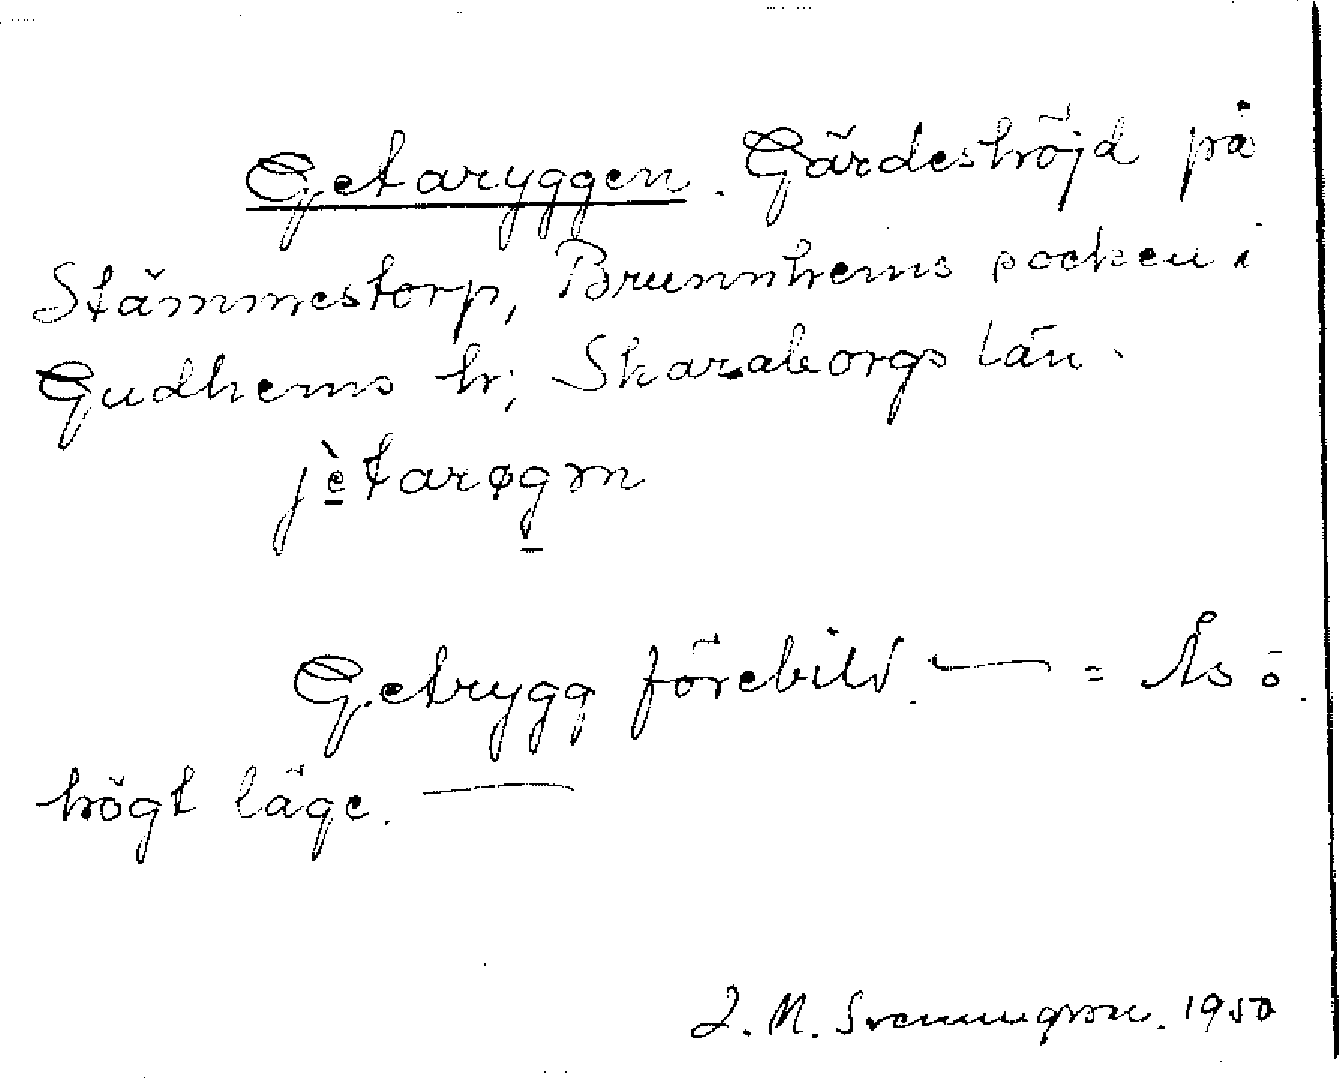 Getaryggen. Gärdeshöjd på
Stämmestorp, Brunnhems socken i
Gudhems hr; Skaraborgs län.
jètarøgən
Getrygg förebild. — = Ås ö.
högt läge. —
J. N. Svenningson. 1950